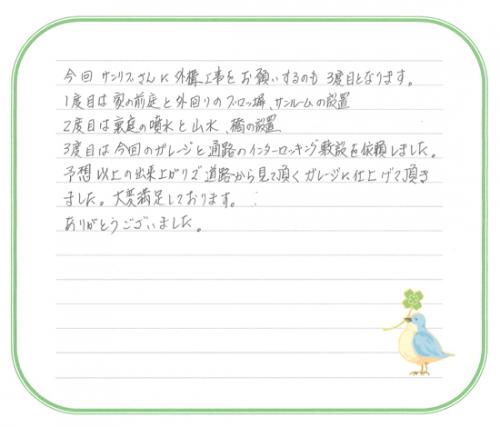 今回 サンリブさんに外構工事をお願いするのも 3度目となります。
1度目は家の前庭と外回りのブロック塀、サンルームの設置
2度目は裏庭の噴水と山水、橋の設置
3度目は今回のガレージと通路のインターロッキング敷設を依頼しました。
予想以上の出来上がりで 道路から見て頂くガレージに仕上げて頂き
ました。大変満足しております。
ありがとうございました。